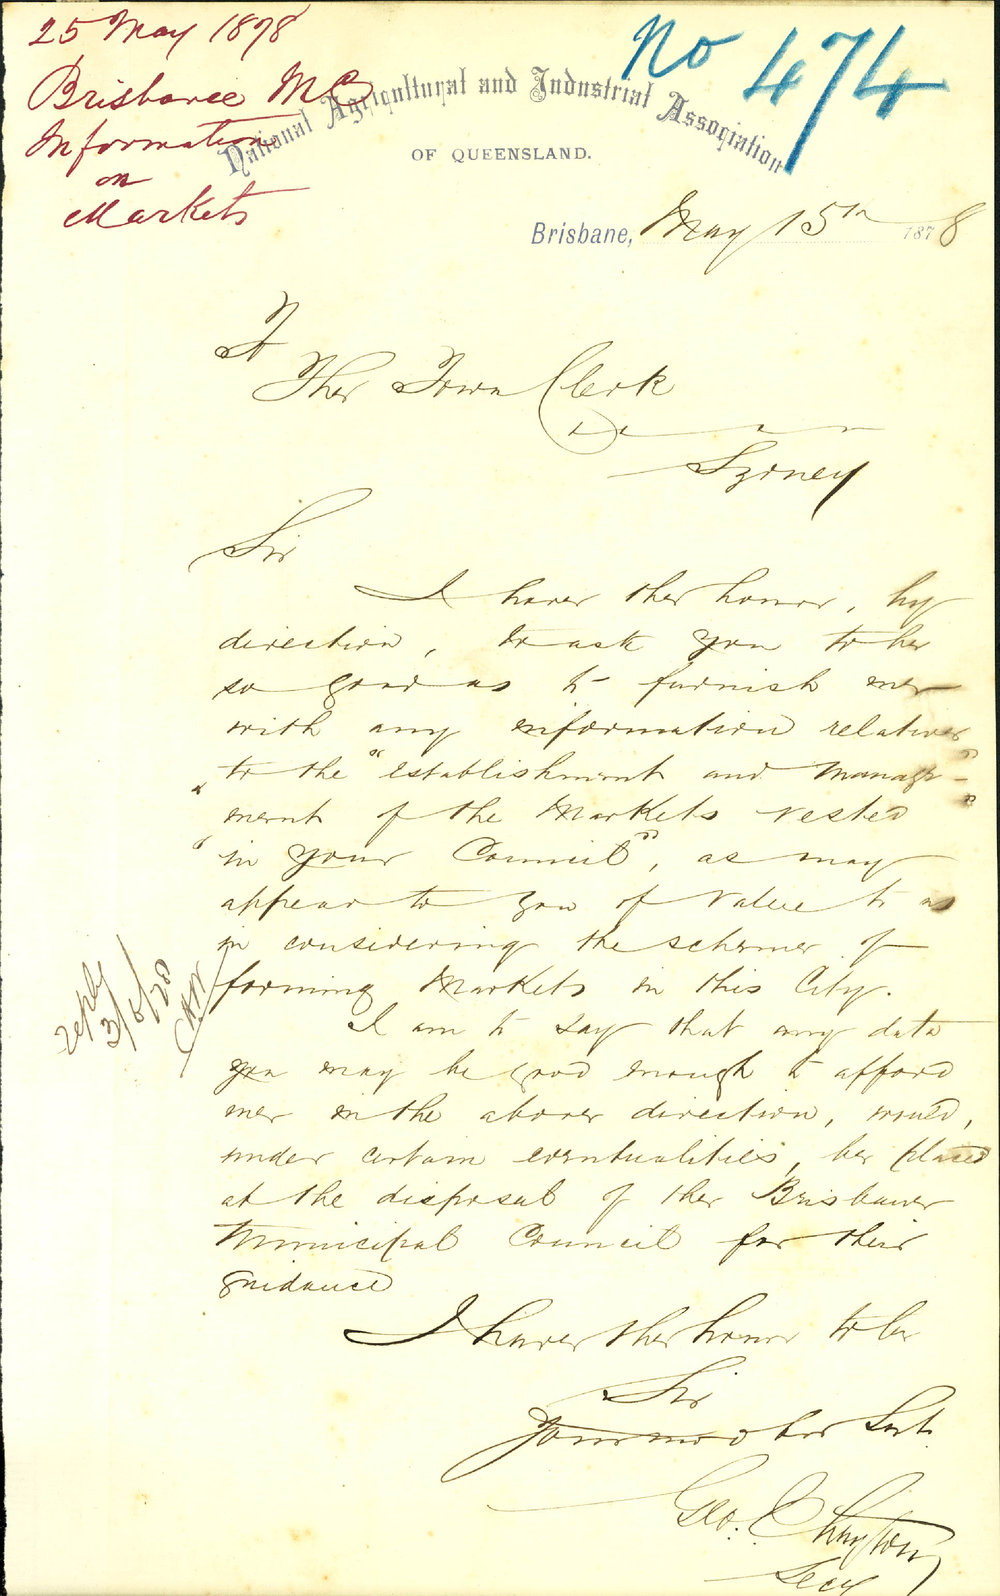 25 May 1878
Brisbane M C
Information
on
Markets
No 474
National Agricultural and Industrial Association
OF QUEENSLAND.
Brisbane, May 15th 1878
To
The Town Clerk
Sydney
Sir
I have the honor, by
direction, to ask you to be
so good as to furnish me
with any information relative
to the "establishment and manage-"
"ment of the Markets vested"
"in your Council", as may
appear to you of value to us
in considering the scheme of
forming Markets in this City.
I am to say that any data
you may be good enough to afford
me in the above direction, would,
under certain eventualities, be placed
at the disposal of the Brisbane
Municipal Council for their
guidance
reply
I have the honor to be
Sir
Your most obt Servt.
Geo.
Secy